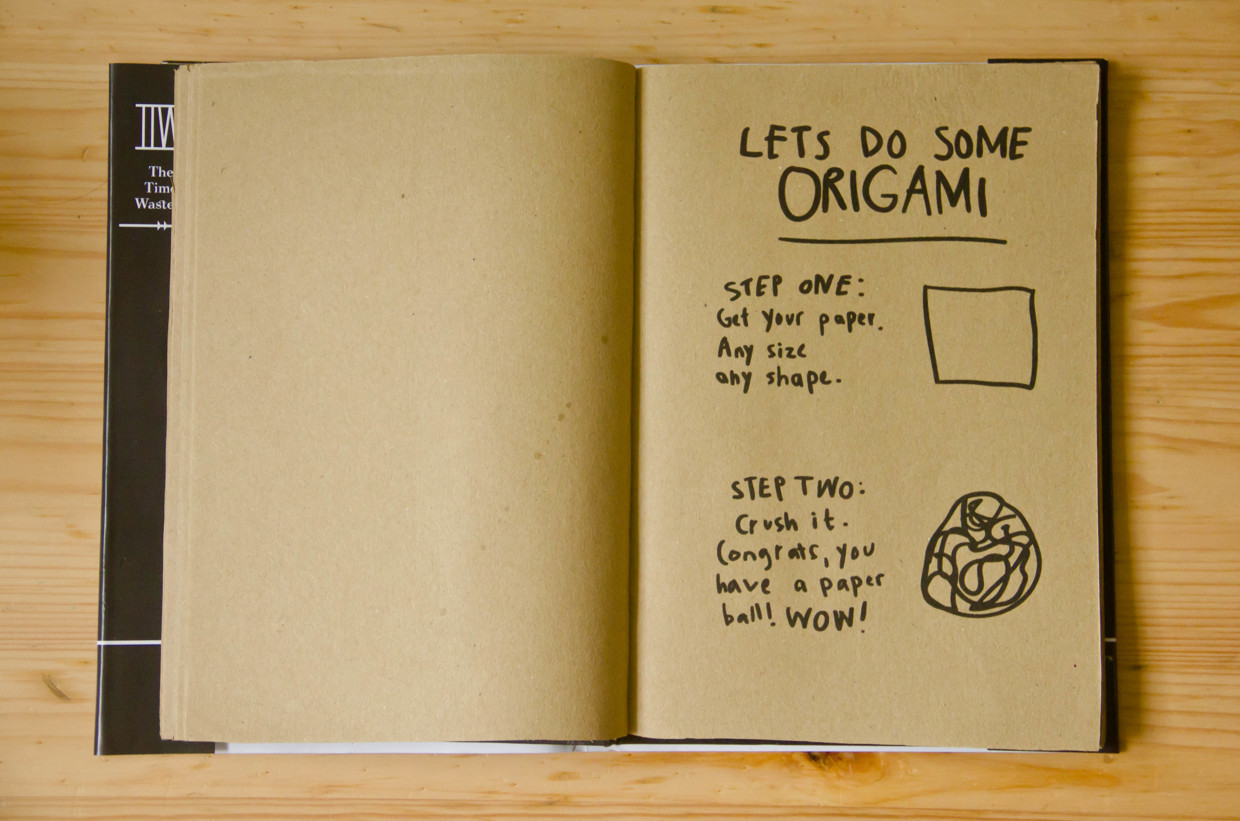 The
LETS DO SOME
ORIGAMI
STEP ONE:
Get your paper.
Any size
any shape.
STEP TWO:
Crush it.
Congrats, you
have a paper
ball! WOW!